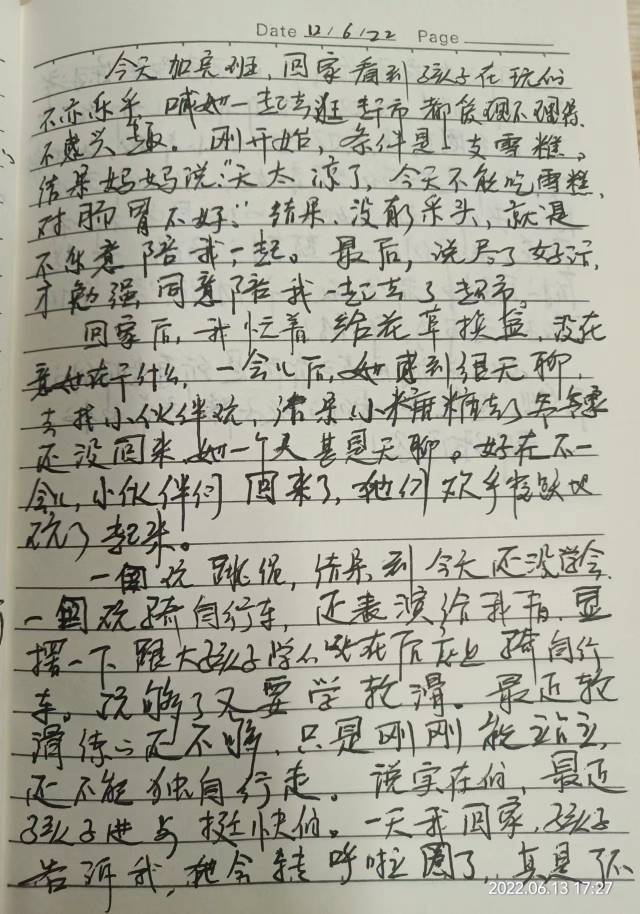 Date 12/6/22 Page
今天加完班，回家看到孩子在玩的
不亦乐乎 喊她一起去逛超市都爱理不理得.
不感兴趣。刚开始，条件是一支雪糕。
结果妈妈说："天太凉了，今天不能吃雪糕，
对肠胃不好."结果，没彩头，就是
不乐意陪我一起。最后，说尽了好话，
才勉强同意陪我一起去了超市。
回家后，我忙着给花草换盆，没在
意她在干什么，一会儿后，她感到很无聊，
去找小伙伴玩，结果小糖糖去了爷爷家
还没回来，她一个人甚是无聊。好在不一
会儿，小伙伴们回来了，她们欢乎雀跃地
玩了起来。
一回玩跳绳，结果到今天还没学会.
一回玩骑自行车，还表演给我看，显
摆一下跟大孩子学 在后座上骑自行
车。玩够了又要学轮滑。最近轮
滑练的还不够，只是刚刚能站立，
还不能独自行走。说实在的，最近
孩子进步挺快的。一天我回家，孩子
告诉我，她会转呼啦圈了，真是了不
2022.06.13 17:27